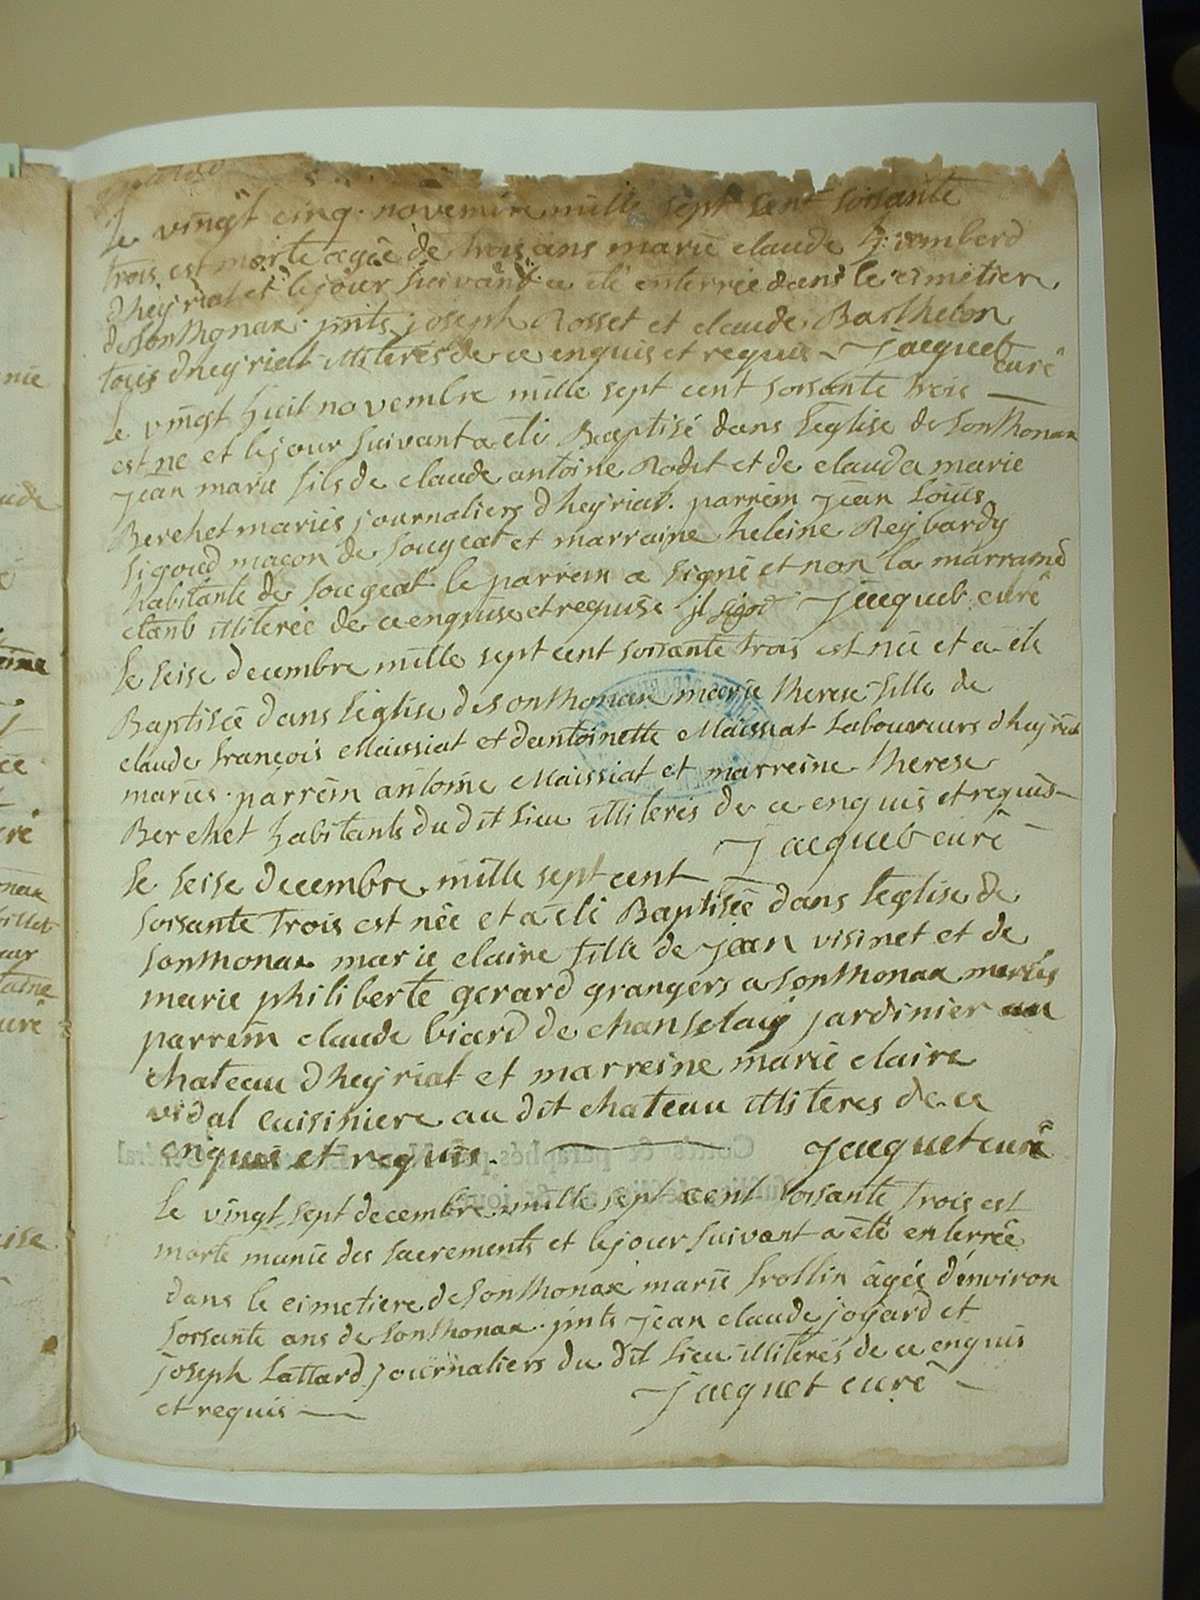 Le vingt cinq novembre mille sept cent soisante
trois est morte agée de trois ans marie claude humberd
dheyriat et le jour suivant a eté enterrée dans le cimetiere
de Sonthonax. pnts joseph Rosset et claude Barthelon
tous dheyriat illiterés de ce enquis et requis Jacquet curé
Le vingt huit novembre mille sept cent soisante trois
est né et le jour suivant a eté Baptisé dans l'eglise de Sonthonax
jean marie fils de claude antoine Rodet et de claude marie
Berchet mariés journaliers dheyriat. parrein jean Louis
Sigoud maçon de Sougeat et marraine heleine Reybardy
habitante de Sougeat le parrein a signé et non la marraine
etant illiterée de ce enquise et requise jl sigod Jacquet curé
Le seise decembre mille sept cent soisante trois est née et a eté
Baptisée dans l'eglise de Sonthonax marie therese fille de
claude françois Maissiat et dantoinette Maissiat Laboureurs dheyriat
mariés. parrein antoine Maissiat et marreine therese
Berchet habitants du dit lieu illiterés de ce enquis et requis
Jacquet curé
Le seise decembre mille sept cent
soisante trois est née et a eté Baptisée dans l'eglise de
sonthonax marie claire fille de jean visinet et de
marie philiberte gerard grangers a Sonthonax mariés
parrein claude biard de jardinier au
chateau dheyriat et marreine marie claire
vidal cuisiniere au dit chateau illiteres de ce
enquis et requis. Jacquet curé
Le vingt sept decembre mille sept cent soisante trois est
morte munie des sacrements et le jour suivant a eté enterrée
dans le cimetiere de Sonthonax marie frollin âgée d'environ
soisante ans de Sonthonax. pnts jean claude joyard et
joseph Lattard journaliers du dit lieu illiterés de ce enquis
et requis Jacquet curé